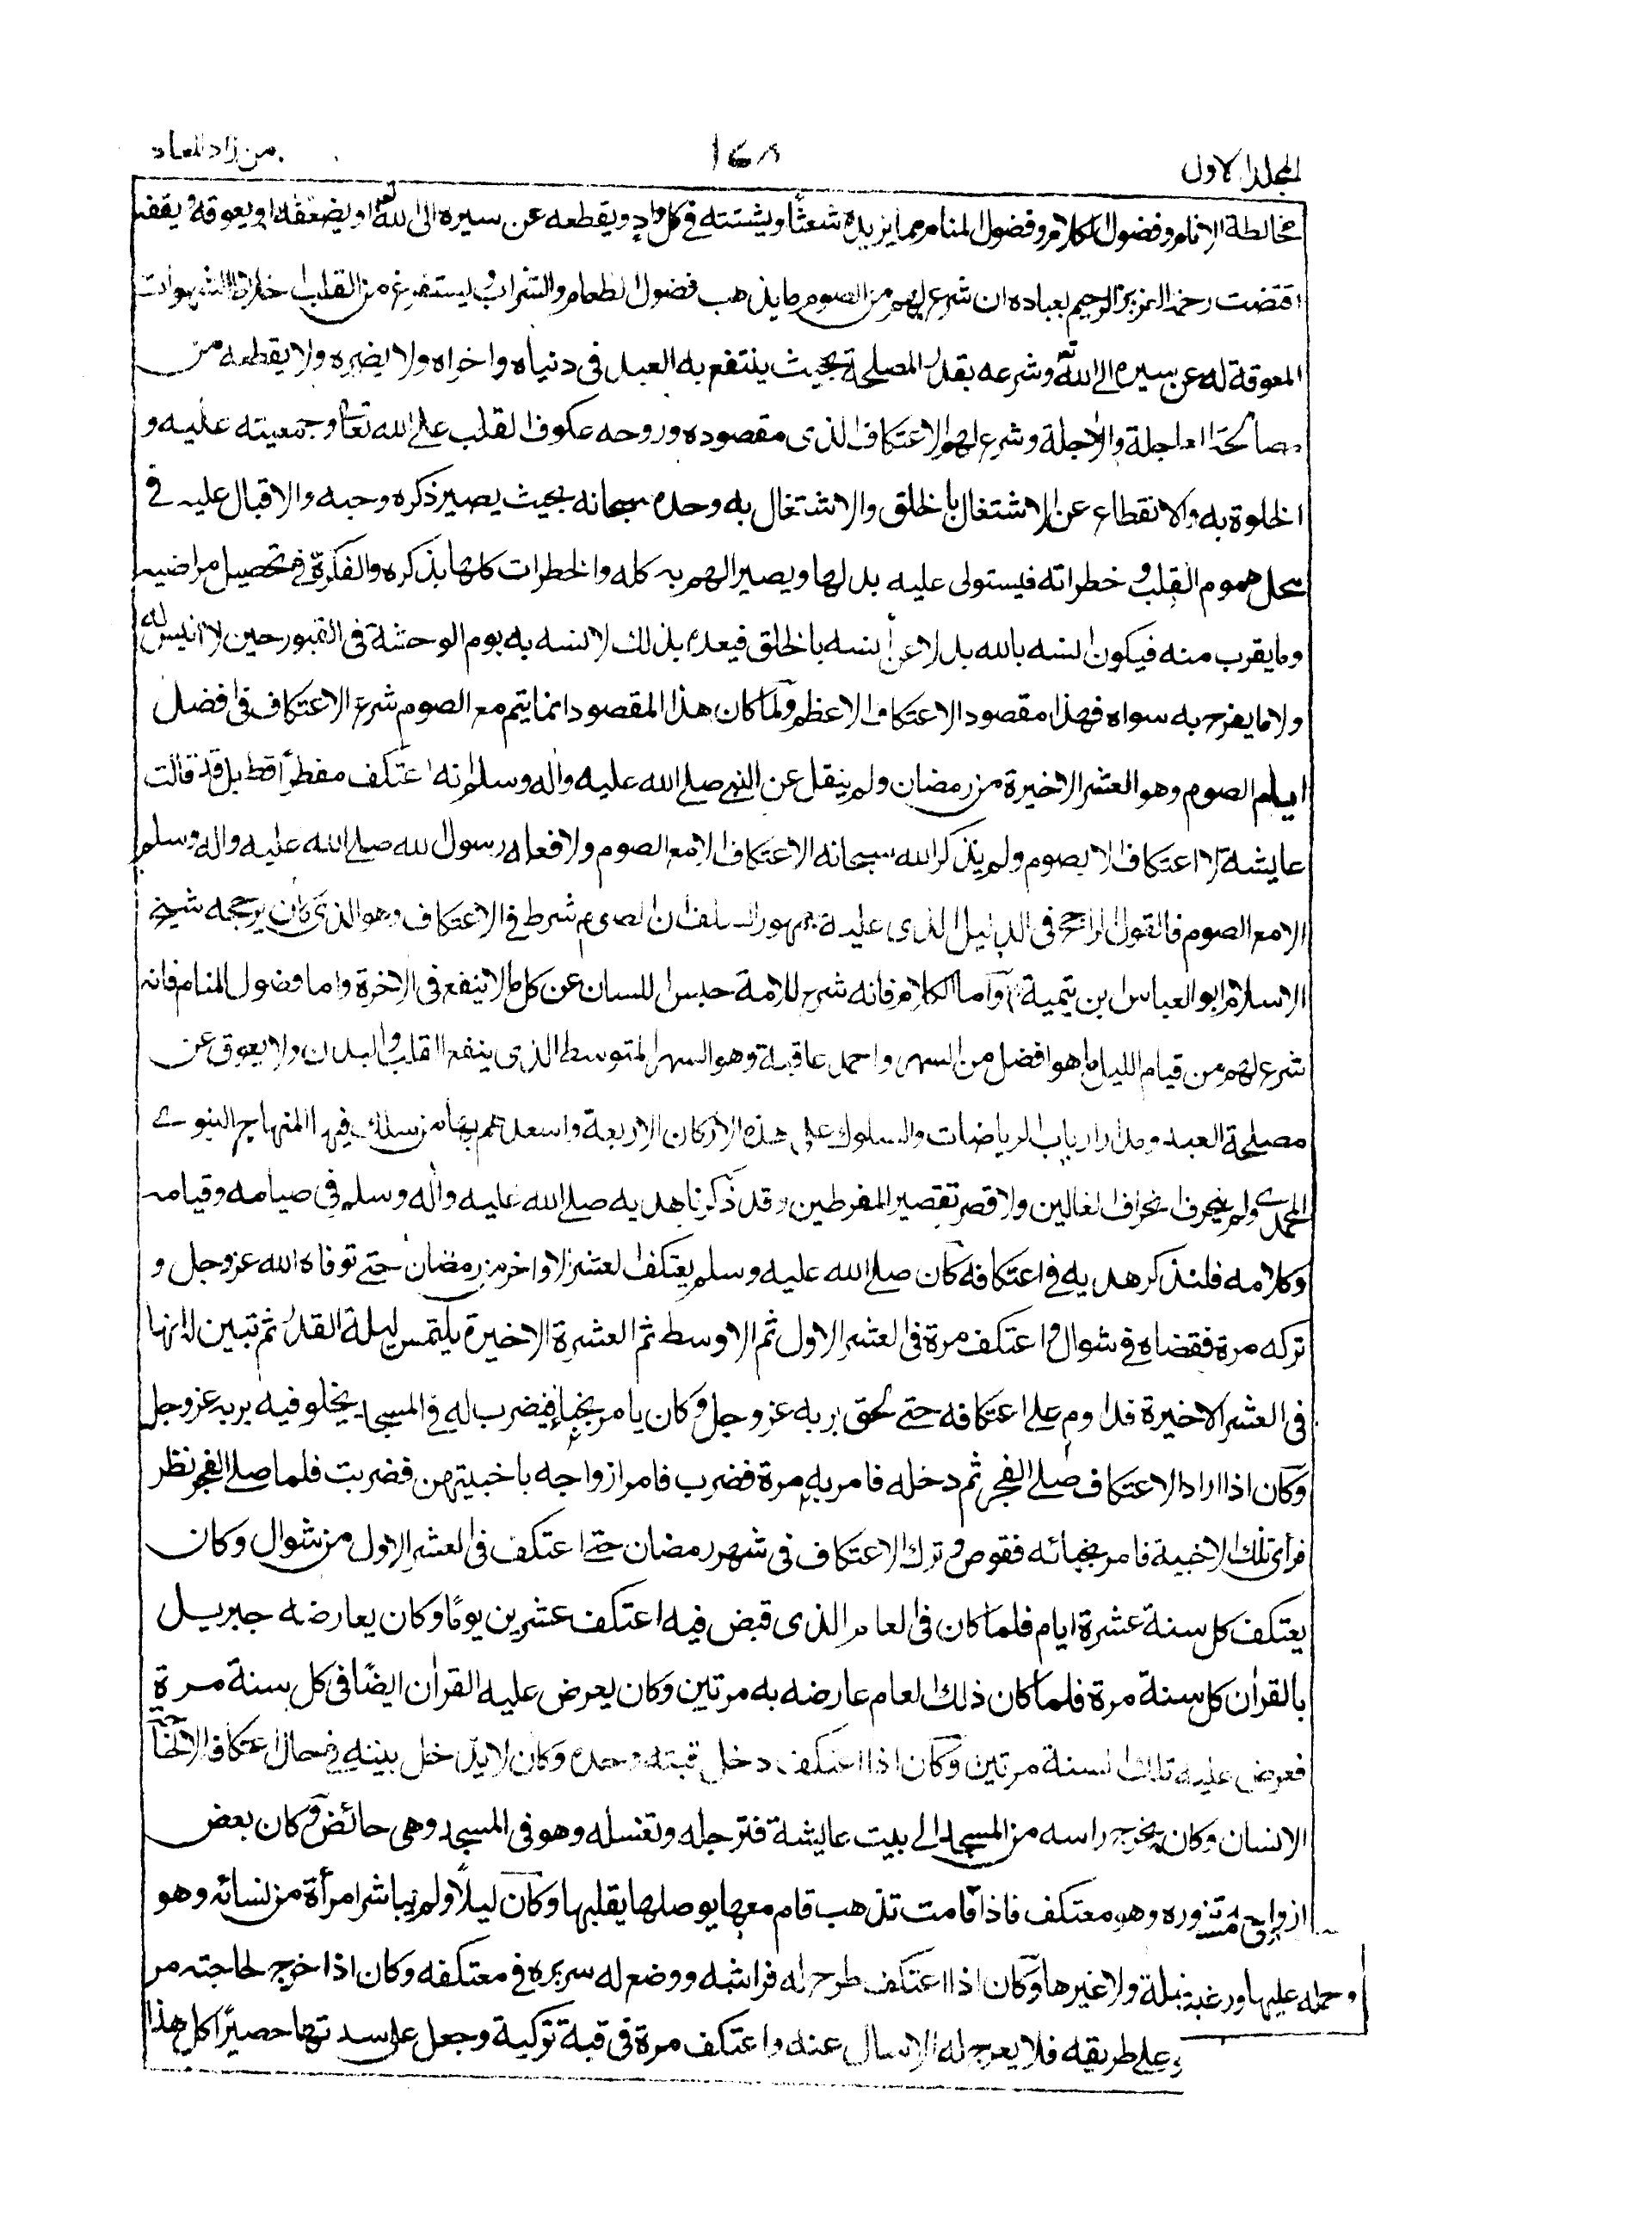 المجلد الاول
١٦٨
من زاد المعاد
مخالطة الانام وفضول الكلام وفضول المنام مما يزيده شعثا ويشتته فى كل واد ويقطعه عن سيره الى الله تعالى او يضعفه او يعوقه ويقفه
اقتضت رحمة العزيز الرحيم بعباده ان شرع لهم من الصوم ما يذهب فضول الطعام والشراب ويستفرغ من القلب اخلاط الشهوات
المعوقة له عن سيره الى الله تعالى وشرعه بقدر المصلحة بحيث ينتفع به العبد فى دنياه واخراه ولا يضره ولا يقطعه من
مصالحه العاجلة والاجلة وشرع لهم الاعتكاف الذى مقصوده وروحه عكوف القلب على الله تعالى وجمعيته عليه و
الخلوة به والانقطاع عن الاشتغال بالخلق والاشتغال به وحده سبحانه بحيث يصير ذكره وحبه والاقبال عليه فى
محل هموم القلب و خطراته فيستولى عليه بدلها ويصير الهم به كله والخطرات كلها بذكره والفكرة فى تحصيل مراضيه
وما يقرب منه فيكون انسه بالله بدلا عن انسه بالخلق فيعده بذلك لانسه به يوم الوحشة فى القبور حين لا انيس له
ولا ما يفرح به سواه فهذا مقصود الاعتكاف الاعظم ولما كان هذا المقصود انما يتم مع الصوم شرع الاعتكاف فى افضل
ايام الصوم وهو العشر الاخيرة من رمضان ولم ينقل عن النبى صلى الله عليه واله وسلم انه اعتكف مفطرا قط بل قد قالت
عايشة لا اعتكاف الا بصوم ولم يذكر الله سبحانه الاعتكاف الا مع الصوم ولا فعله رسول الله صلى الله عليه واله وسلم
الا مع الصوم فالقول الراجح فى الدليل الذى عليه جمهور السلف ان الصوم شرط فى الاعتكاف وهو الذى كان يرجحه شيخ
الاسلام ابو العباس ابن تيمية واما الكلام فانه شرع للامة حبس اللسان عن كل ما لا ينفع فى الاخرة واما فضول المنام فانه
شرع لهم من قيام الليل ما هو افضل من السهر واحمد عاقبة وهو السهر المتوسط الذى ينفع القلب والبدن ولا يعوق عن
مصلحة العبد ومدار ارباب الرياضات والسلوك على هذه الاركان الاربعة واسعدهم بها من سلك فيها المنهاج النبوى
المحمدى ولم ينحرف انحراف الغالين ولا قصر تقصير المفرطين وقد ذكرنا هديه صلى الله عليه واله وسلم فى صيامه وقيامه
وكلامه فلنذكر هديه فى اعتكافه كان صلى الله عليه وسلم يعتكف العشر الاواخر من رمضان حتى توفاه الله عز وجل و
تركه مرة فقضاه فى شوال و اعتكف مرة فى العشر الاول ثم الاوسط ثم العشرة الاخيرة يلتمس ليلة القدر ثم تبين له انها
فى العشر الاخيرة فداوم على اعتكافه حتى لحق بربه عز وجل وكان يامر بخباء فيضرب له فى المسجد يخلو فيه بربه عز وجل
وكان اذا اراد الاعتكاف صلى الفجر ثم دخله فامر به مرة فضرب فامر ازواجه باخبيتهن فضربت فلما صلى الفجر نظر
فراى تلك الاخبية فامر بخبائه فقوض و ترك الاعتكاف فى شهر رمضان حتى اعتكف فى العشر الاول من شوال وكان
يعتكف كل سنة عشرة ايام فلما كان فى العام الذى قبض فيه اعتكف عشرين يومًا وكان يعارضه جبريل
بالقرأن كل سنة مرة فلما كان ذلك العام عارضه به مرتين وكان يعرض عليه القرأن ايضًا فى كل سنة مرة
فعرض عليه تلك السنة مرتين وكان اذا اعتكف دخل قبته وحده وكان لا يدخل بيته فى حال اعتكافه الا لحاجة
الانسان وكان يخرج راسه من المسجد الى بيت عايشة فترجله وتغسله وهو فى المسجد وهى حائض و كان بعض
ازواجه تزوره وهو معتكف فاذا قامت تذهب قام معها يوصلها يقلبها وكان ليلًا ولم يباشر امرأة من نسائه وهو
بقبلة ولا غيرها وكان اذا اعتكف طرح له فراشه ووضع له سريره فى معتكفه وكان اذا خرج لحاجته مر
على طريقه فلا يعرج له الا يسال عنه واعتكف مرة فى قبة تركية وجعل على سدتها حصيرًا كل هذا